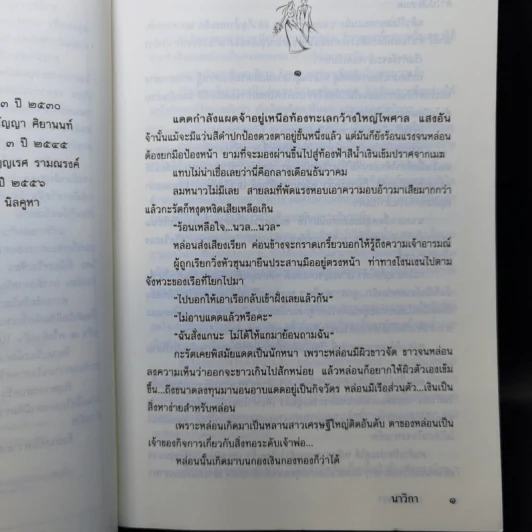 ๓ ปี ๒๕๓๐
ัญญา ศิยานนท์
๓ ปี ๒๕๔๕
ญเรศ รามณรงค์
ปี ๒๕๕๖
นิลคูหา
๑
แดดกำลังแผดจ้าอยู่เหนือท้องทะเลกว้างใหญ่ไพศาล แสงอัน
จ้านั้นแม้จะมีแว่นสีดำปกป้องดวงตาอยู่ชั้นหนึ่งแล้ว แต่มันก็ยังร้อนแรงจนหล่อน
ต้องยกมือป้องหน้า ยามที่จะมองผ่านขึ้นไปสู่ท้องฟ้าสีน้ำเงินเข้มปราศจากเมฆ
แทบไม่น่าเชื่อเลยว่านี่คือกลางเดือนธันวาคม
ลมหนาวไม่มีเลย สายลมที่พัดแรงหอบเอาความอบอ้าวมาเสียมากกว่า
แล้วกะรัตก็หงุดหงิดเสียเหลือเกิน
"ร้อนเหลือใจ...นวล...นวล"
หล่อนส่งเสียงเรียก ค่อนข้างจะกราดเกรี้ยวบอกให้รู้ถึงความเจ้าอารมณ์
ผู้ถูกเรียกวิ่งหัวซุนมายืนประสานมืออยู่ตรงหน้า ท่าทางโงนเงนไปตาม
จังหวะของเรือที่โยกไปมา
"ไปบอกให้เอาเรือกลับเข้าฝั่งเลยแล้วกัน"
"ไม่อาบแดดแล้วหรือคะ"
"ฉันสั่งแกนะ ไม่ได้ให้แกมาย้อนถามฉัน"
กะรัตเคยพิสมัยแดดเป็นนักหนา เพราะหล่อนมีผิวขาวจัด ขาวจนหล่อน
ลงความเห็นว่าออกจะขาวเกินไปสักหน่อย แล้วหล่อนก็อยากให้ผิวตัวเองเข้ม
ขึ้น...ถึงขนาดลงทุนมานอนอาบแดดอยู่เป็นกิจวัตร หล่อนมีเรือส่วนตัว...เงินเป็น
สิ่งหาง่ายสำหรับหล่อน
เพราะหล่อนเกิดมาเป็นหลานสาวเศรษฐีใหญ่ติดอันดับ ตาของหล่อนเป็น
เจ้าของกิจการเกี่ยวกับสิ่งทอระดับเจ้าพ่อ...
หล่อนนั้นเกิดมาบนกองเงินกองทองก็ว่าได้
นาวิกา ๑